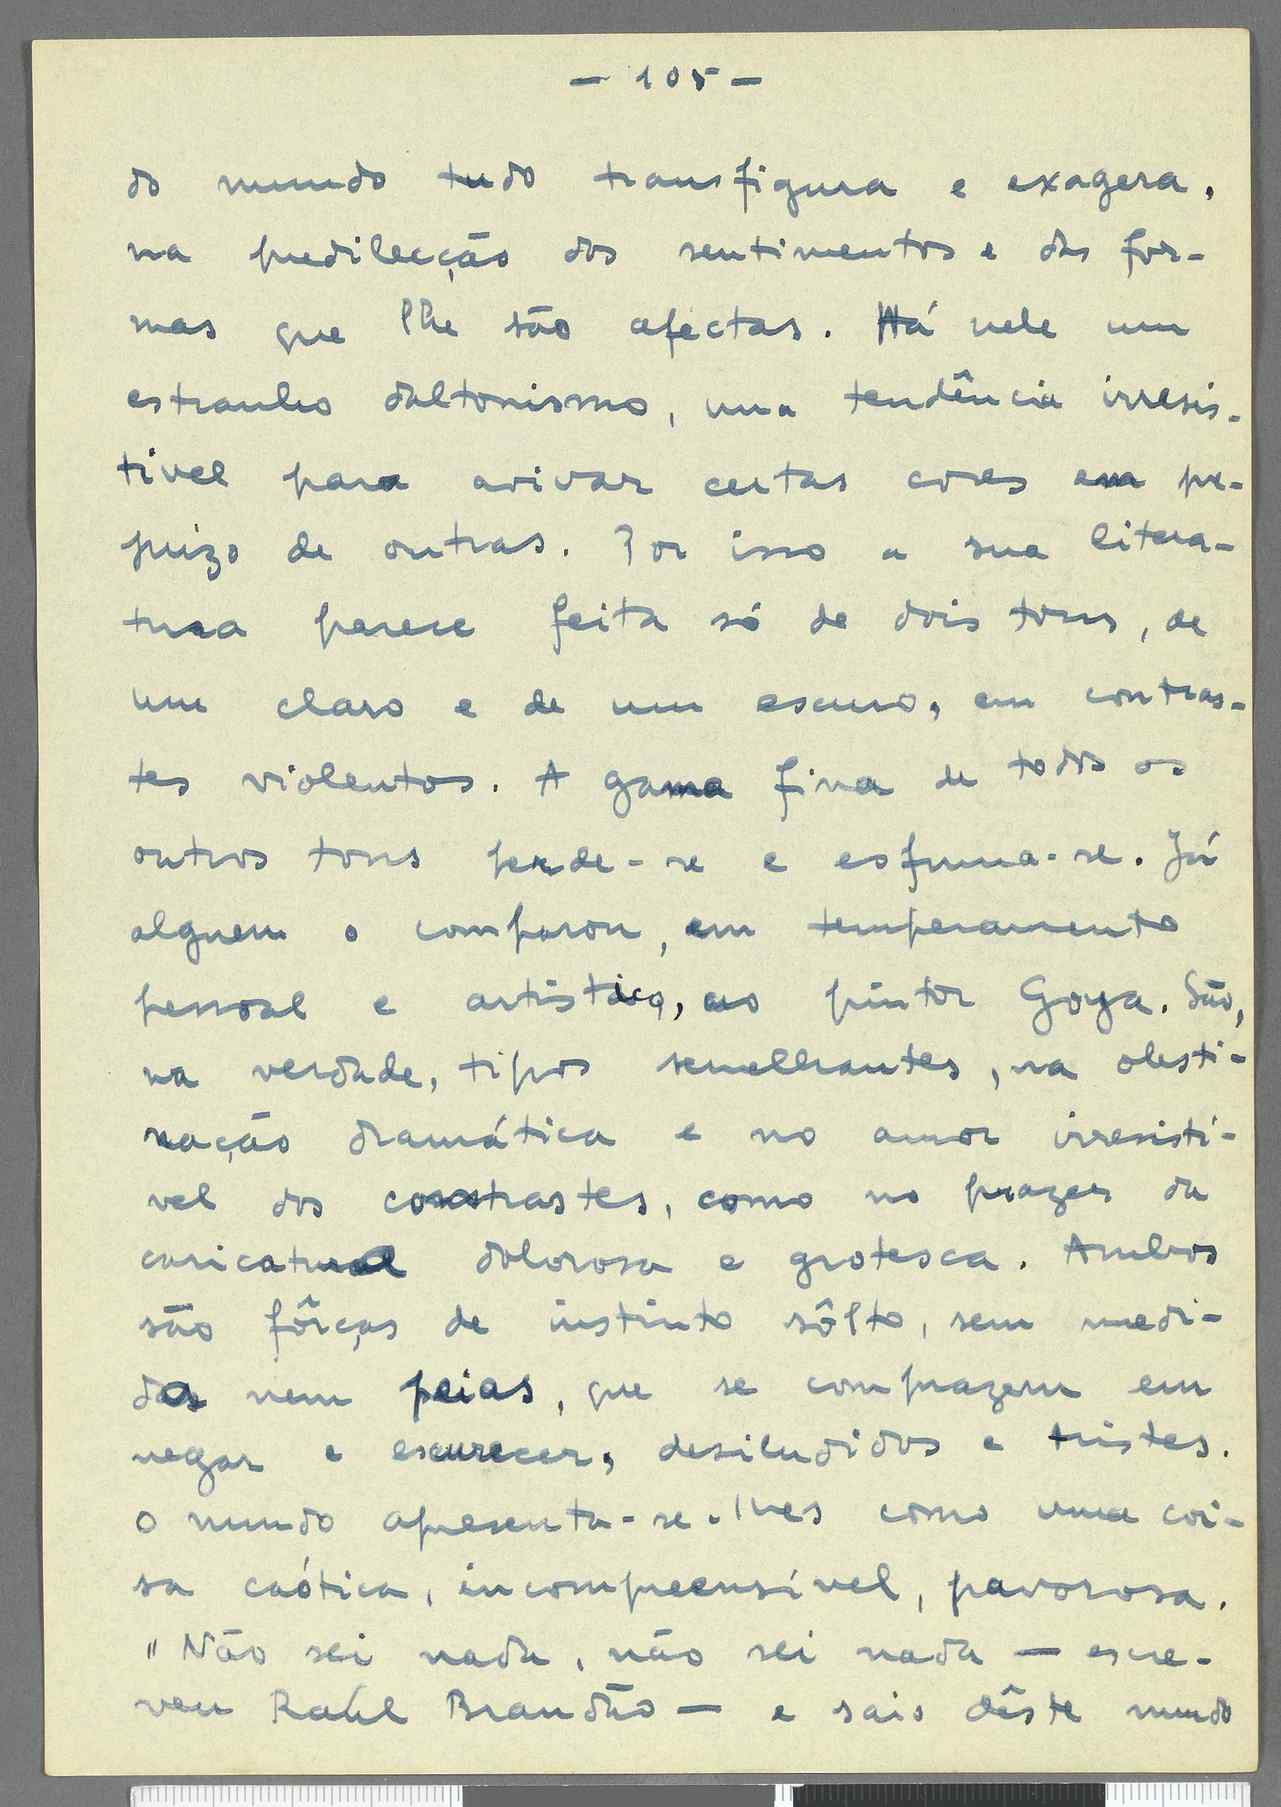 — 105 —
do mundo tudo transfigura e exagera,
na predilecção dos sentimentos e das for-
mas que lhe são afectas. Há nele um
estranho daltonismo, uma tendência irresis-
tivel para avivar certas cores em pre-
juizo de outras. Por isso a sua litera-
tura parece feita só de dois tons, de
um claro e de um escuro, em contras-
tes violentos. A gama fina de todos os
outros tons perde-se e esfuma-se. Já
alguem o comparou, em temperamento
pessoal e artistico, ao pintor Goya. São,
na verdade, tipos semelhantes, na obsti-
nação dramática e no amor irresisti-
vel dos contrastes, como no prazer da
caricatura dolorosa e grotesca. Ambos
são fôrças de instinto sôlto, sem medi-
da nem peias, que se comprazem em
negar e escurecer, desiludidos e tristes.
O mundo apresenta-se-lhes como uma coi-
sa caótica, incompreensível, pavorosa.
"Não sei nada, não sei nada — escre-
veu Raúl Brandão — e saio dêste mundo